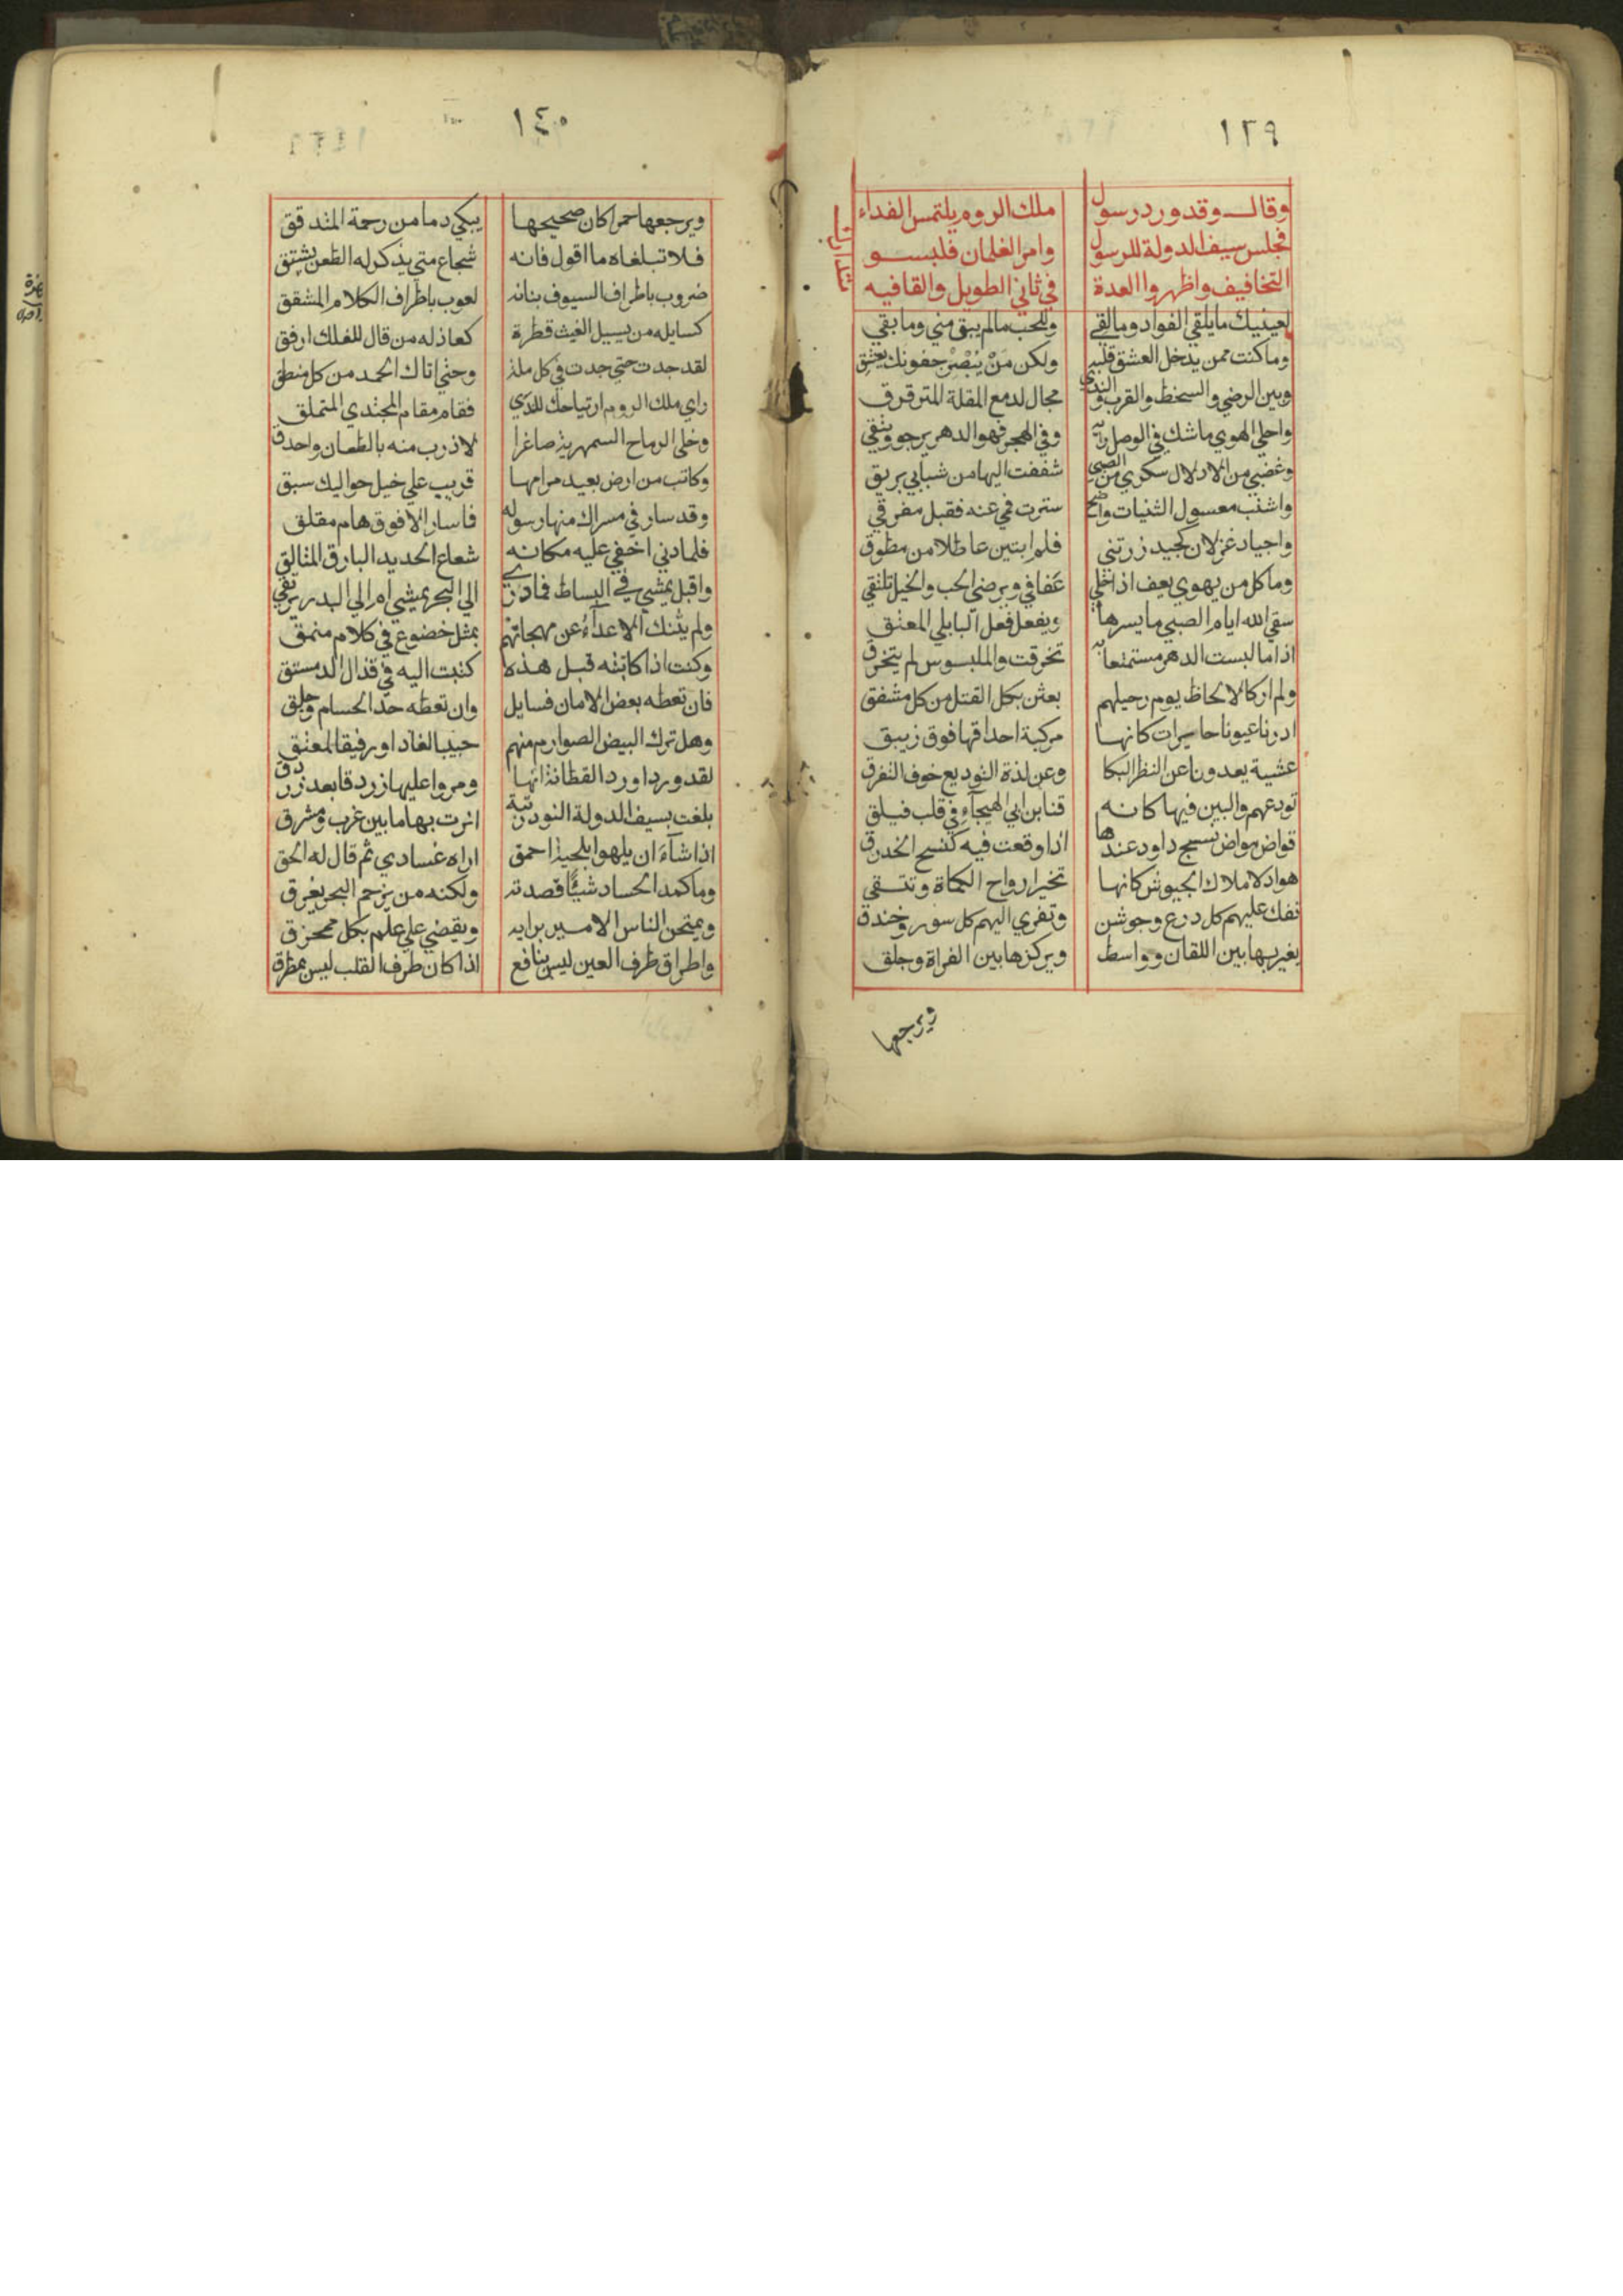 ١٣٩
وقال وقد ورد رسول ملك الروم يلتمس الفداء
فجلس سيف الدولة للرسول وامر الغلمان فلبسو
التخافيف واظهروا العدة في ثاني الطويل والقافيه
متدارك
لعينيك مايلقي الفواد ومالقي وللحب مالم يبق مني ومابقي
وماكنت ممن يدخل العشق قلبه ولكن مَنْ يُبْصِرْ جفونك يعشق
وبين الرضي والسخط والقرب والندي مجال لدمع المقلة المترقرق
واحلي الهوي ماشك في الوصل ربه وفي الهجر فهو الدهر يرجو ويتقي
وغضبي من الادلال سكري من الصبي شفعت اليها من شبابي بريق
واشنب معسول الثنيات واضح سترت فمي عنه فقبل مفرقي
واجياد غزلان كجيد زرتني فلم ابتين عاطلا من مطوق
وماكل من يهوي يعف اذا خلي عفافي ويرضي الحب والخيل تلتقي
سقي الله ايام الصبي مايسرها ويفعل فعل البابلي المعتق
اذا مالبست الدهر مستمتعا به تخرقت والملبوس لم يتخرق
ولم ار كالالحاظ يوم رحيلهم بعثن بكل القتل من كل مشفق
ادرنا عيونا حايرات كانها مركبة احداقها فوق زيبق
عشية يعدونا عن النظر البكا وعن لذة التوديع خوف التفرق
نودعهم والبين فيها كانه قنا بن ابي الهيجآء في قلب فيلق
قواض مواض نسج داود عندها اذا وقعت فيه كنسج الخدرق
هواد لاملاك الجيوش كانها تخير ارواح الكماة وتنتقي
تفك عليهم كل درع وجوشن وتفري اليهم كل سور وخندق
يغير بها بين اللقان وواسط ويركزها بين الفراة وجلق
ويرجعها
١٤٠
ويرجعها حمرا كان صحيحها يبكي دما من رحمة المتدقق
فلا تبلغاه ما اقول فانه شجاع متي يذكر له الطعن يشتق
ضروب باطراف السيوف بنانه لعوب باطراف الكلام المشقق
كسايله من يسيل الغيث قطرة كعاذله من قال للفلك ارفق
لقد جدت حتي جدت في كل ملة وحتي اتاك الحمد من كل منطق
راي ملك الروم ارتياحك للندي فقام مقام المجتدي المتملق
وخلي الرماح السمهرية صاغرا لادرب منه بالطعان واحذق
وكاتب من ارض بعيد مرامها قريب علي خيل حواليك سبق
وقد سار في مسراك منها رسوله فما سار الا فوق هام مفلق
فلما دني اخفي عليه مكانه شعاع الحديد البارق المتالق
واقبل يمشي في البساط فما دري الي البحر يمشي ام الي البدر يرتقي
ولم يثنك الاعدآءُ عن مهجاتهم بمثل خضوع في كلام منمق
وكنت اذا كاتبته قبل هذه كتبت اليه في قذال الدمستق
فان تعطه بعض الامان فسايل وان تعطه حد الحسام وخلق
وهل ترك البيض الصوارم منهم حبيبا لفاد او رفيقا لمعتق
لقد وردوا ورد القطا نة انها ومروا عليها زردقا بعد زردق
بلغت بسيف الدولة النور رتبة انرت بها مابين غرب ومشرق
اذا شآءَ ان يلهوا بلحية احمق اراه غساري ثم قال له الحق
وماكمد الحساد شيًا قصدته ولكنه من يزحم البحر يغرق
ويمتحن الناس الامير برايه ويقضي علي علم بكل ممخرق
واطراق طرف العين ليس بنافع اذا كان طرف القلب ليس بمطرق